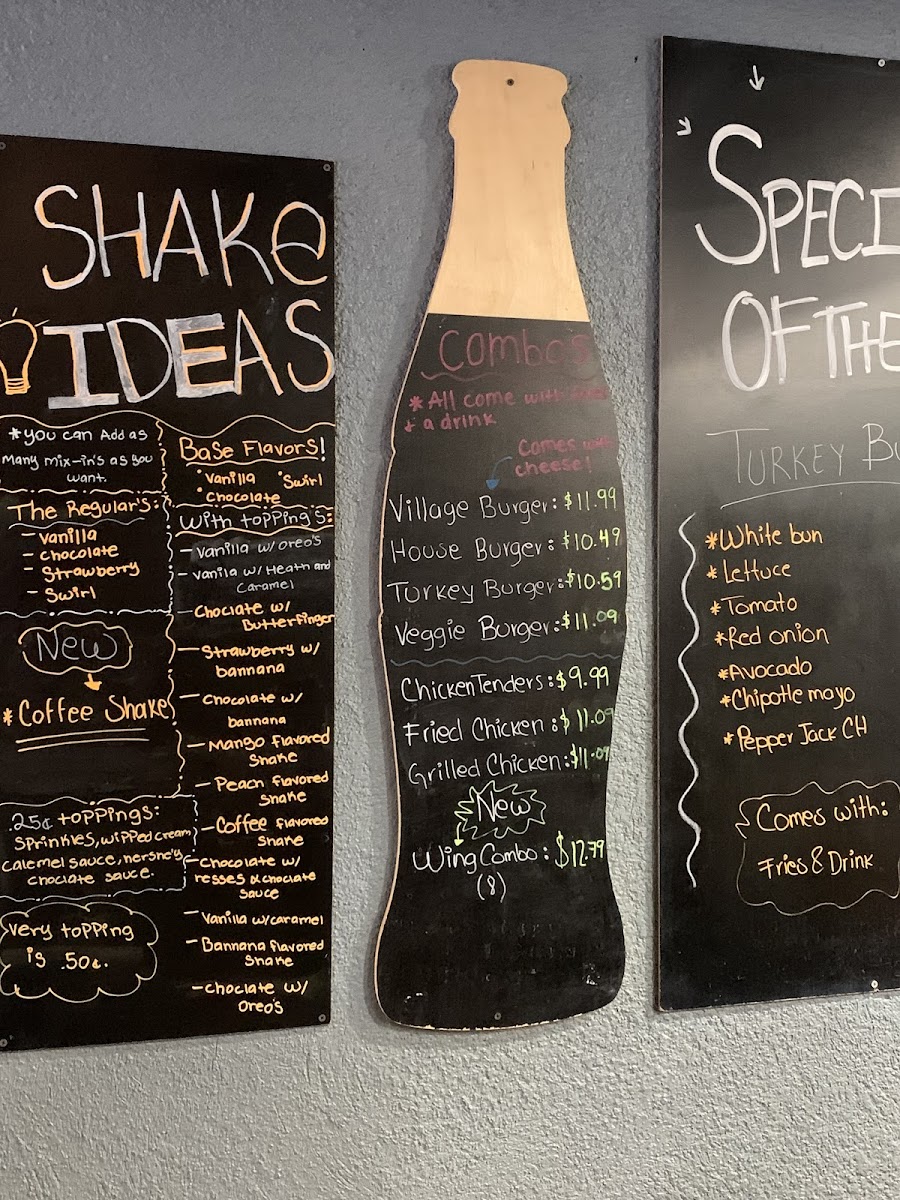 SHAKe
IDEAS
*you can Add as
many mix-in's as you
want.
The Regular's:
- vanilla
- chocolate
- Strawberry
- Swirl
New
* Coffee Shake
.25¢ toppings:
sprinkles, wipped cream
calemel sauce, hershe'y
choclate sauce.
very topping
is .50¢.
Base Flavors!
•Vanilla •Swirl
•Chocolate
With topping's:
- Vanilla w/oreo's
- Vanila w/Heath and
Caramel
- Choclate w/
Butterfinger
- Strawberry w/
bannana
- Chocolate w/
bannana
- Mango flavored
Shake
- Peach flavored
Shake
- Coffee flavored
Shake
- Chocolate w/
resses & choclate
sauce
- Vanilla w/caramel
- Bannana flavored
Shake
- choclate w/
oreo's
Combos
*All come with
+ a drink
Comes with
cheese!
Village Burger: $11.99
House Burger: $10.49
Turkey Burger: $10.59
Veggie Burger: $11.09
Chicken Tenders: $9.99
Fried Chicken: $11.09
Grilled Chicken: $11.09
New
Wing Combo: $12.79
(8)
SPECI
OF THE
TURKEY BU
*White bun
*Lettuce
*Tomato
*Red onion
*Avocado
*Chipotle mayo
*Pepper Jack CH
Comes with:
Fries & Drink